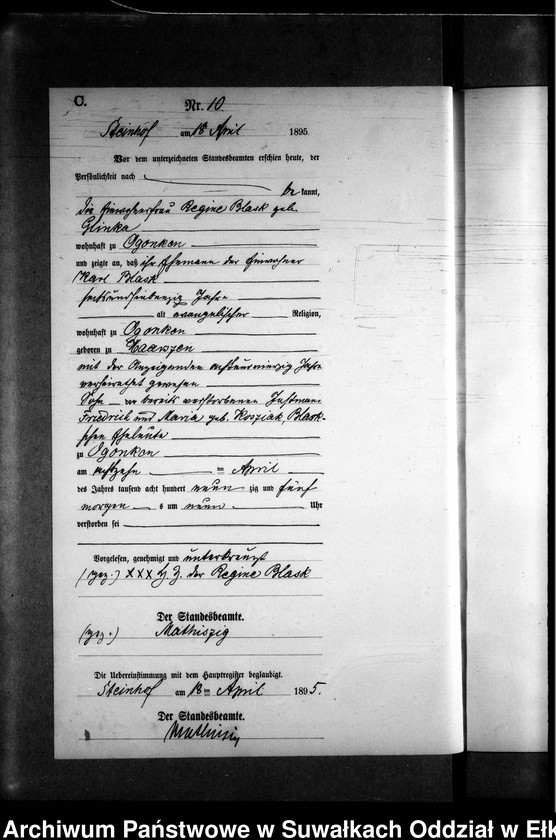 C.
Nr. 10.
Steinhof am 18 April 1895.
Vor dem unterzeichneten Standesbeamten erschien heute, der
Persönlichkeit nach
be kannt,
die Einwohnerfrau Regine Blask geb.
Glinka
wohnhaft zu Ogonken
und zeigte an, daß ihr Ehemann der Einwohner
Karl Blask
sechsundsiebenzig Jahre
alt evangelischer Religion,
wohnhaft zu Ogonken
geboren zu Haarszen
mit der Anzeigenden achtundvierzig Jahre
verheirathet gewesen
Sohn der bereits verstorbenen Instmann
Friedrich und Maria geb. Kosziak, Blask-
schen Eheleute
zu Ogonken
am achtzehn ten April
des Jahres tausend acht hundert neun zig und fünf
morgens um neun Uhr
verstorben sei
Vorgelesen, genehmigt und unterkreuzt
(gez.) XXX H. Z. der Regine Blask
Der Standesbeamte.
(gez.) Mathiszig
Die Uebereinstimmung mit dem Hauptregister beglaubigt.
Steinhof am 18 ten April 1895.
Der Standesbeamte.
Mathiszig
Archiwum Państwowe w Suwałkach Oddział w Ełk